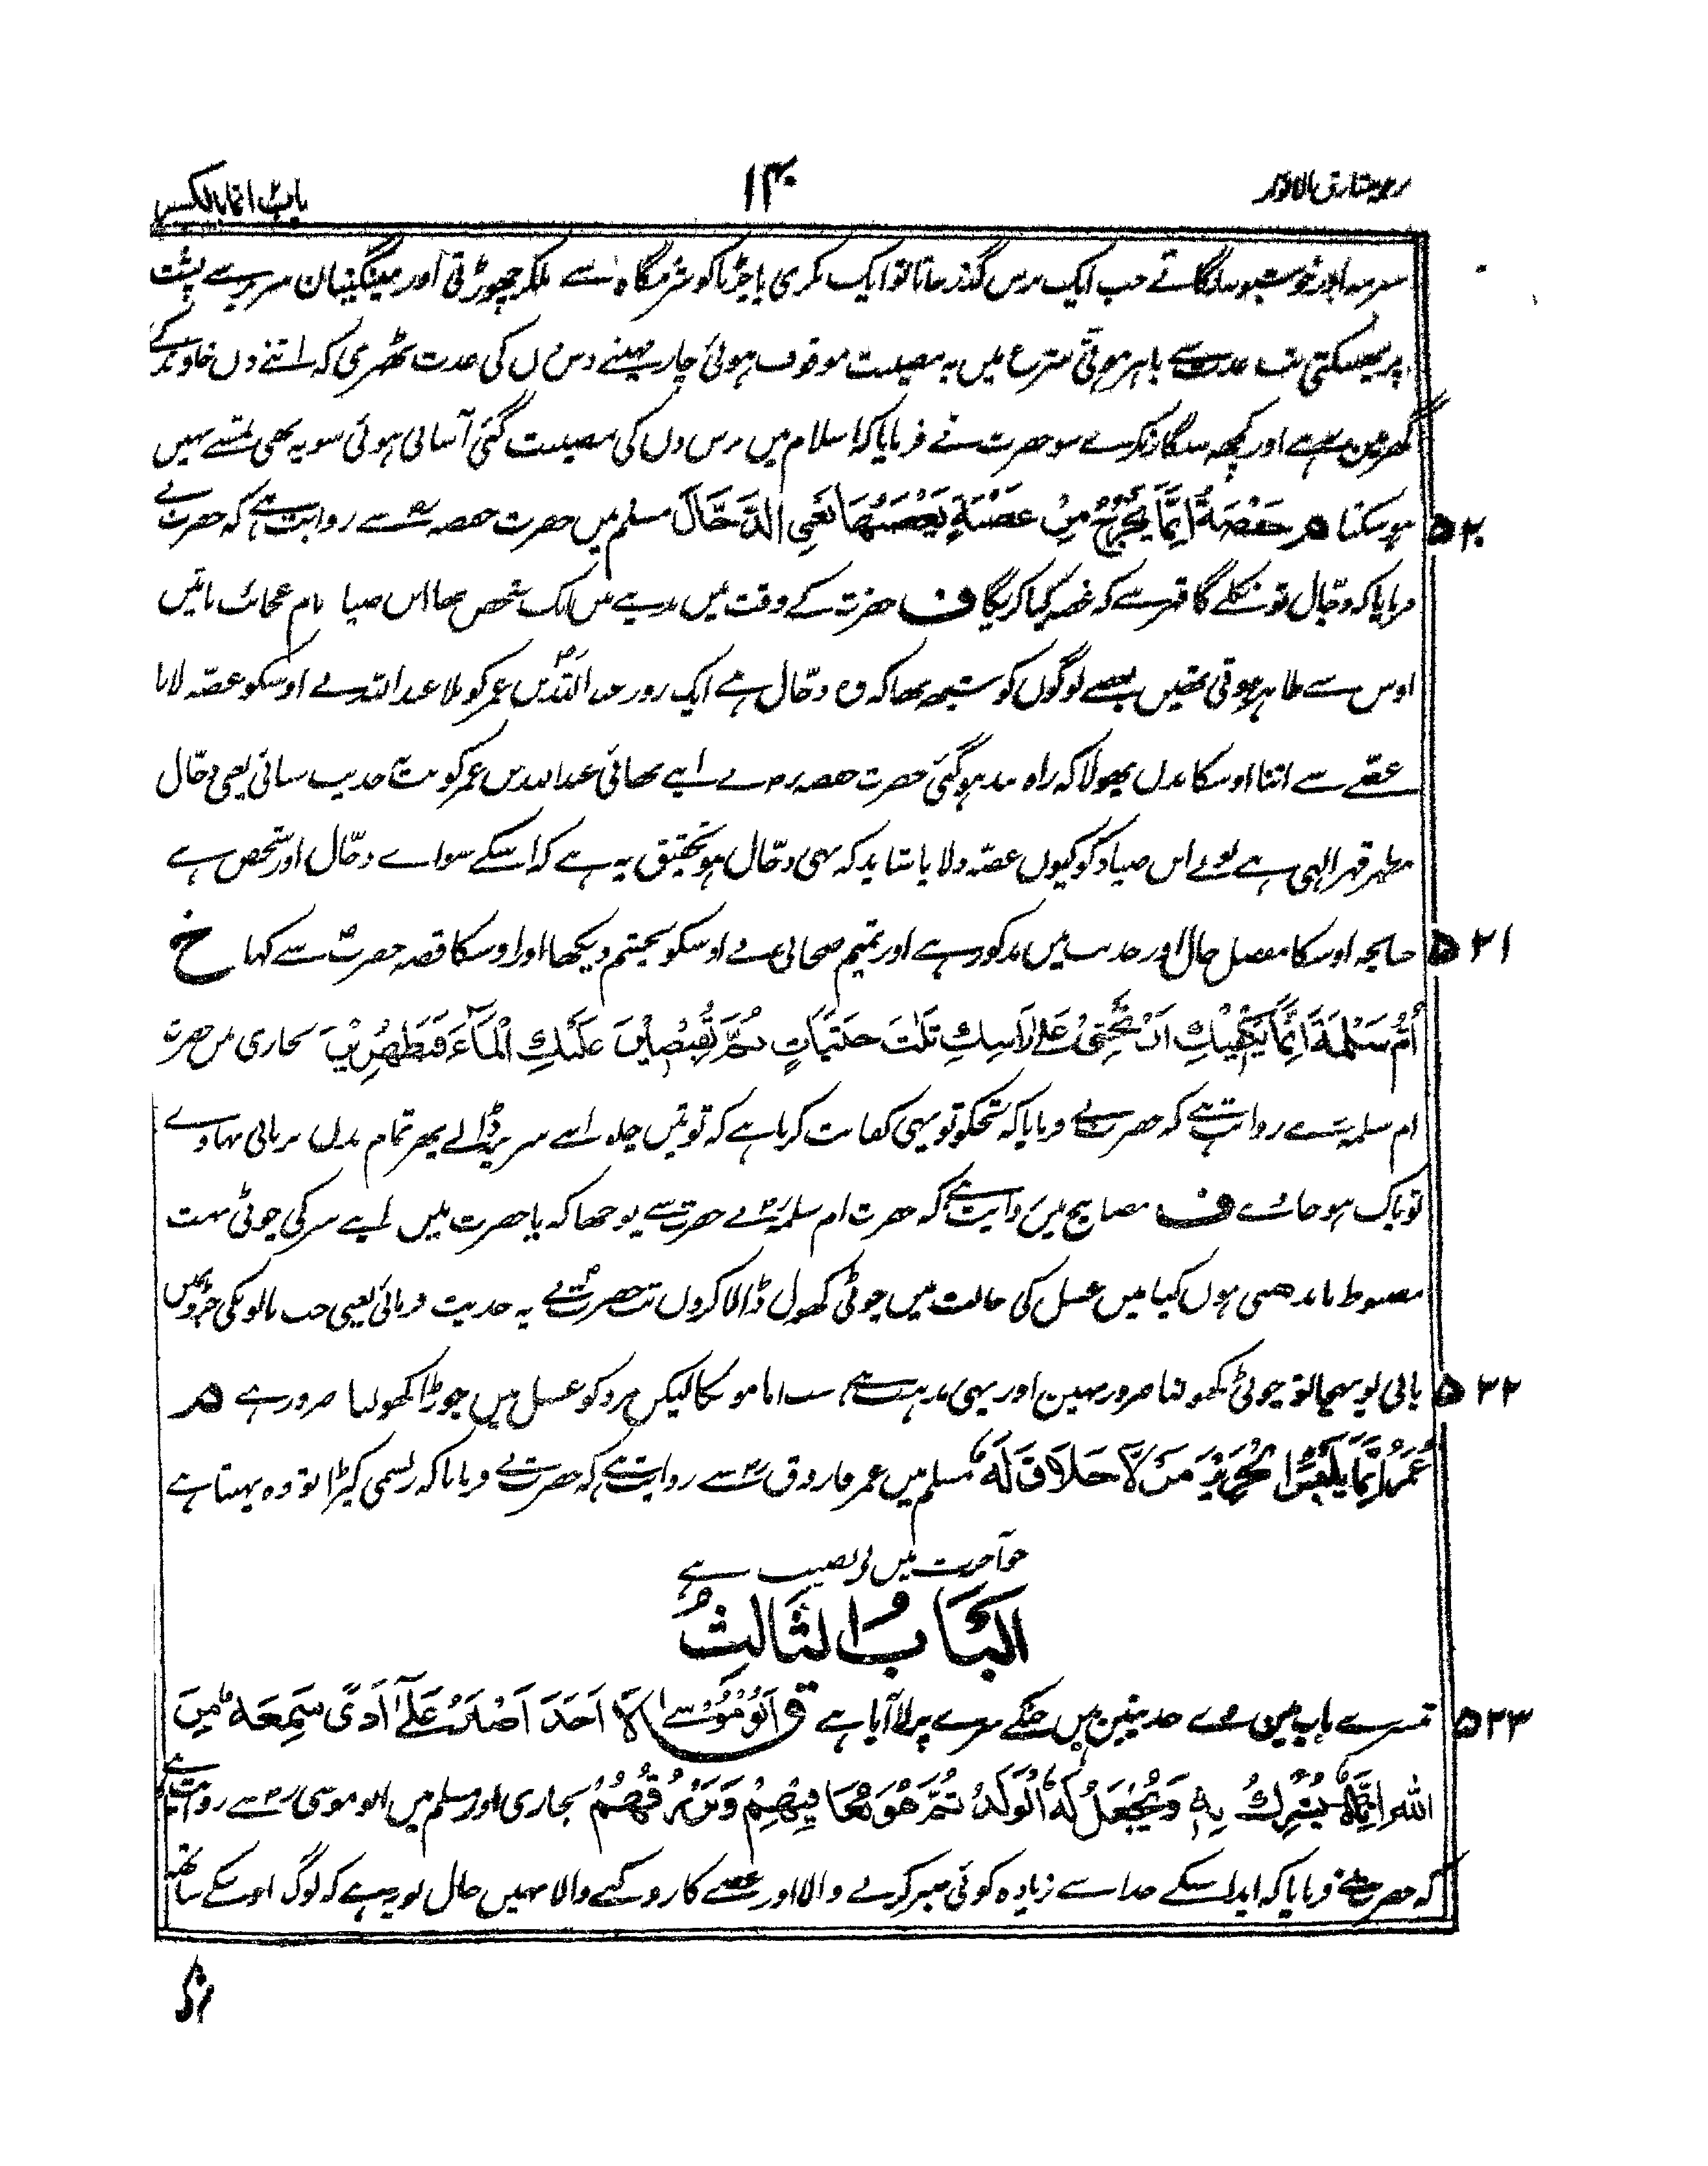 ترجمہ مشارق الانوار
۱۴۰
باب۲ انما بالکسر
سرمہ اور خوشبو نہ لگاتے جب ایک برس گذر جاتا تو ایک بکری یا چڑیا کو شرمگاہ سے ملکر چھوڑتی اور مینگنیان سر پر سے پشت
پر پھینکتی تب عدت سے باہر ہوتی شرع میں یہ مصیبت موقوف ہوئی چار مہینے دس دن کی عدت ٹھہری کہ اتنے دن خاوند کے
گھر میں رہے اور کچھ سنگار نکرے سو حضرت نے فرمایا کہ اسلام میں برس دن کی مصیبت گئی آسانی ہوئی سو یہ بھی تمسے نہیں
۵۲۰ ہو سکتا م حَفْصَةُ اِنَّمَا يَخْرُجُ مِنْ غَضْبَةٍ يَغْضَبُهَا يَعْنِى الدَّجَّالَ مسلم میں حضرت حفصہ رض سے روایت ہے کہ حضرت نے
فرمایا کہ دجّال تو نکلے گا قہر سے کہ غصہ کیا کریگا ف حضرت کے وقت میں مدینے میں ایک شخص تھا ابن صیاد نام عجائب باتیں
اوس سے ظاہر ہوتی تھیں بعضے لوگوں کو شبہہ تھا کہ وہ دجّال ہے ایک روز عبد اللہ بن عمر کو ملا عبد اللہ نے اوسکو غصّہ لایا
غصّے سے اتنا اوسکا بدن پھولا کہ راہ بند ہو گئی حضرت حفصہ رض نے اپنے بھائی عبد اللہ بن عمر کو تب حدیث سنائی یعنی دجّال
مظہر قہر الہی ہے تونے ابن صیاد کو کیوں غصّہ دلایا شاید کہ یہی دجّال ہو تحقیق یہ ہے کہ اسکے سواے دجّال اور شخص ہے
۵۲۱ چنانچہ اوسکا مفصل حال اور حدیث میں مذکور ہے اور تمیم صحابی نے اوسکو بچشم دیکھا اور اوسکا قصہ حضرت سے کہا خ
اُمُّ سَلَمَةَ اِنَّمَا يَكْفِيْكِ اَنْ تَحْثِىْ عَلٰى رَأْسِكِ ثَلٰثَ حَثَيَاتٍ ثُمَّ تُفِيْضِيْنَ عَلَيْكِ الْمَآءَ فَتَطَهَّرِيْنَ بخاری میں حضرت
ام سلمہ سے روایت ہے کہ حضرت نے فرمایا کہ تجھکو تو یہی کفایت کرتا ہے کہ تو تین چلو اپنے سر پر ڈالے پھر تمام بدن پر پانی بہاوے
تو پاک ہو جائے ف مصابیح میں روایت ہے کہ حضرت ام سلمہ رض نے حضرت سے پوچھا کہ یا حضرت میں اپنے سر کی چوٹی بہت
مضبوط باندھتی ہوں کیا میں غسل کی حالت میں چوٹی کھول ڈالا کروں تب حضرت نے یہ حدیث فرمائی یعنی جب بالونکی جڑوں میں
۵۲۲ پانی پہنچا تو چوٹی کھولنا ضرور نہین اور یہی مذہب ہے سب اماموں کا لیکن مرد کو غسل میں جوڑا کھولنا ضرور ہے م
عُمَرُ اِنَّمَا يَلْبَسُ الْحَرِيْرَ مَنْ لَّا خَلَاقَ لَهٗ مسلم میں عمر فاروق رض سے روایت ہے کہ حضرت نے فرمایا کہ ریشمی کپڑا تو وہ پہنتا ہے
جو آخرت میں بے نصیب ہے
اَلْبَابُ الثَّالِثُ
۵۲۳ تیسرے باب میں وے حدیثین ہیں جنکے سرے پر لا آیا ہے ق اَبُوْ مُوْسٰى لَآ اَحَدَ اَصْبَرُ عَلٰٓى اَذًى سَمِعَهٗ مِنَ
اللهِ اِنَّهٗ يُشْرَكُ بِهٖ وَيُجْعَلُ لَهُ الْوَلَدُ ثُمَّ هُوَ يُعَافِيْهِمْ وَيَرْزُقُهُمْ بخاری اور مسلم میں ابو موسی رض سے روایت ہے
کہ حضرت نے فرمایا کہ ایذا سکے خدا سے زیادہ کوئی صبر کرنے والا اور غصے کا روکنے والا نہیں حال تو یہ ہے کہ لوگ اوسکے ساتھ